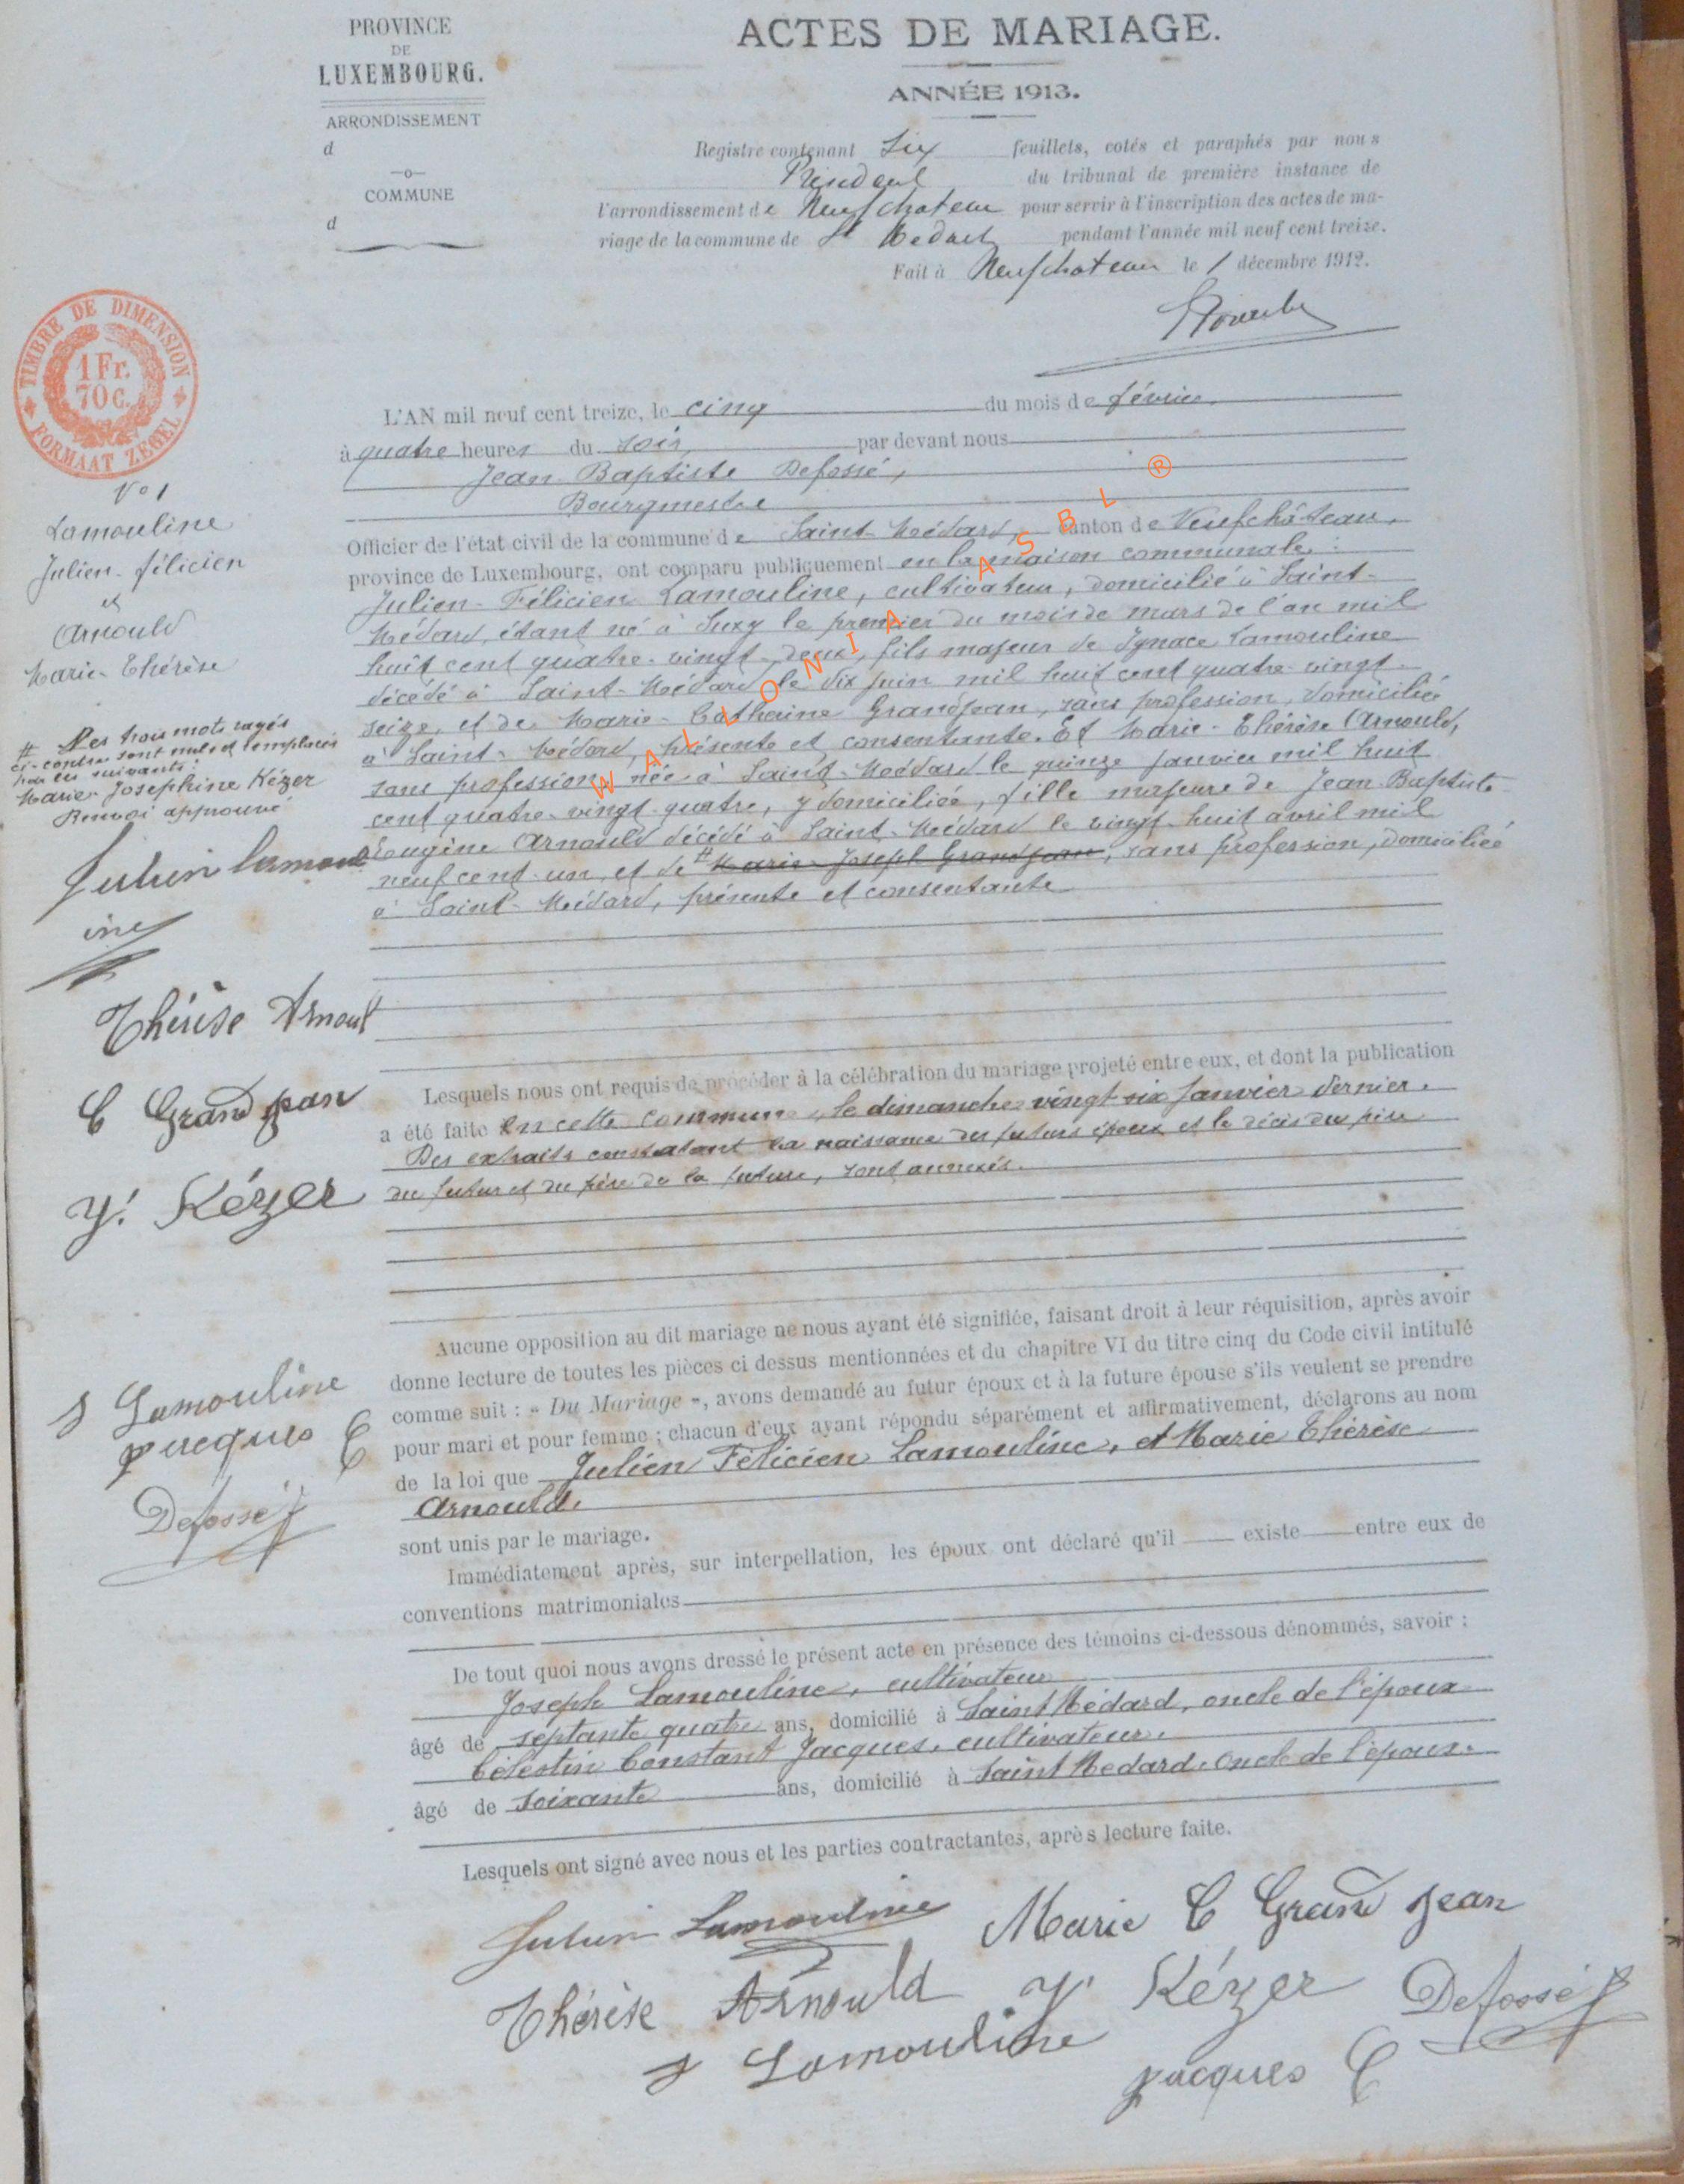 PROVINCE
DE
LUXEMBOURG.
ARRONDISSEMENT
d
COMMUNE
d
ACTES DE MARIAGE.
ANNÉE 1913.
Registre contenant Six feuillets, cotés et paraphés par nous
Président du tribunal de première instance de
l'arrondissement de Neufchateau pour servir à l'inscription des actes de ma-
riage de la commune de St Médard pendant l'année mil neuf cent treize.
Fait à Neufchateau le 1 décembre 1912.
TIMBRE DE DIMENSION
1 Fr.
70 c.
FORMAAT ZEGEL
No 1
Lamouline
Julien-Félicien
et
Arnould
Marie-Thérèse
# Les trois mots rayés
ci-contre sont nuls et remplacés
par les suivants:
Marie-Josephine Kézer
Renvoi approuvé
Julien Lamoul
ine
Thérèse Arnoul
C Grandjean
J. Kézer
J Lamouline
Jacques C
Defossé
L'AN mil neuf cent treize, le cinq du mois de février
à quatre heures du soir, par devant nous
Jean Baptiste Defossé,
Bourgmestre
Officier de l'état civil de la commune de Saint-Médard, canton de Neufchâteau,
province de Luxembourg, ont comparu publiquement en la maison communale:
Julien-Félicien Lamouline, cultivateur, domicilié à Saint-
Médard, étant né à Suxy le premier du mois de mars de l'an mil
huit cent quatre-vingt-deux, fils majeur de Ignace Lamouline
décédé à Saint-Médard le dix juin mil huit cent quatre-vingt-
seize, et de Marie-Catherine Grandjean, sans profession, domiciliée
à Saint-Médard, présente et consentante. Et Marie-Thérèse Arnould,
sans profession, née à Saint-Médard le quinze janvier mil huit
cent quatre-vingt-quatre, y domiciliée, fille majeure de Jean-Baptiste-
Eougène Arnould décédé à Saint-Médard le vingt-huit avril mil
neuf cent-un, et de # Marie-Joseph Grandjean, sans profession, domiciliée
à Saint-Médard, présente et consentante
Lesquels nous ont requis de procéder à la célébration du mariage projeté entre eux, et dont la publication
a été faite en cette commune, le dimanche vingt-six janvier dernier.
Des extraits constatant la naissance des futurs époux et le décès du père
du futur et du père de la future, sont annexés.
Aucune opposition au dit mariage ne nous ayant été signifiée, faisant droit à leur réquisition, après avoir
donne lecture de toutes les pièces ci dessus mentionnées et du chapitre VI du titre cinq du Code civil intitulé
comme suit : « Du Mariage », avons demandé au futur époux et à la future épouse s'ils veulent se prendre
pour mari et pour femme ; chacun d'eux ayant répondu séparément et affirmativement, déclarons au nom
de la loi que Julien Félicien Lamouline, et Marie Thérèse
Arnould.
sont unis par le mariage.
Immédiatement après, sur interpellation, les époux ont déclaré qu'il existe entre eux de
conventions matrimoniales
De tout quoi nous avons dressé le présent acte en présence des témoins ci-dessous dénommés, savoir :
Joseph Lamouline, cultivateur
âgé de septante quatre ans, domicilié à Saint Médard, oncle de l'époux
Célestin Constant Jacques, cultivateur.
âgé de soixante ans, domicilié à Saint Médard. Oncle de l'époux.
Lesquels ont signé avec nous et les parties contractantes, après lecture faite.
Julien Lamouline Marie C Grand Jean
Thérèse Arnould J. Kézer Defossé
J Lamouline Jacques C
WALLONIA ASBL ®